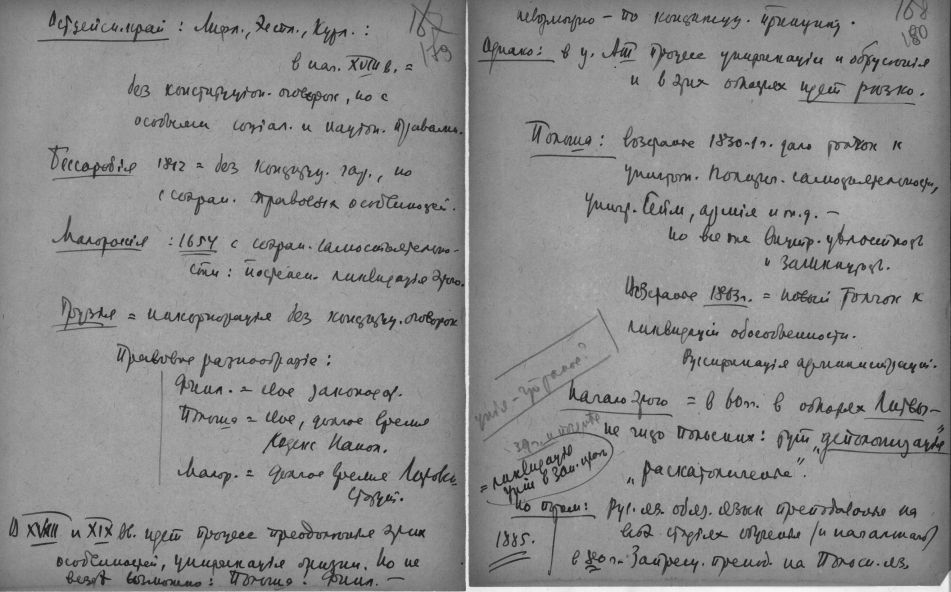 Остзейск. край: Лифл., Эстл., Курл.:
в нач. XVIII в. =
без конституцион. оговорок, но с
особыми социал. и национ. правами.
Бессарабия 1812 = без конституц. гар., но
с сохран. правовых особенностей.
Малороссия: 1654 с сохран. самостоятельно-
сти: постепен. ликвидация этого.
Грузия = инкорпорация без конституц. оговорок
Правовое разнообразие:
Финл. = свое законодат.
Польша = свое, долгое время
Кодекс Напол.
Малор. = долгое время Литовск.
Статут.
В XVIII и XIX вв. идет процесс преодоления этих
особенностей, унификация организ. Но не
везде возможно: Польша. Финл. —
179
невозможно — по конституц. принципу.
Однако: в у. АIII процесс унификации и обрусения
и в этих областях идет резко.
Польша: восстание 1830-1 г. дало толчок к
уничтож. Польск. самостоятельности,
уничт. Сейм, армия и т.д. —
но все же
Восстание 1863 г. = новый толчок к
ликвидации обособленности.
Руссификация администрации.
Начало этого = в 60 гг. в областях Литвы —
не чисто польских: тут "деполонизация"
"раскатоличение".
= ликвидация
унии в Зап. крае
Но потом: Рус. яз. обяз. язык преподавания на
1885. всех стадиях обучения (и начальной)
в 80 гг. Запрещ. препод. на Польск. яз.
180